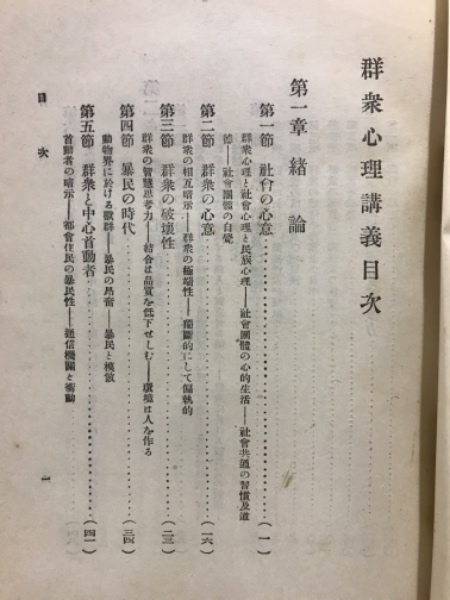 群衆心理講義目次
第一章 緒論
第一節 社會の心意……(一)
群衆心理と社會心理と民族心理――社會團體の心的生活――社會共通の習慣及道
德――社會團體の自覺
第二節 群衆の心意……(一六)
群衆の相互暗示――群衆の極端性――獨斷的にして偏執的
第三節 群衆の破壞性……(二三)
群衆の智慧思考力――結合は品質を低下せしむ――環境は人を作る
第四節 暴民の時代……(三四)
動物界に於ける獸群――暴民の昂奮――暴民と模倣
第五節 群衆と中心首動者……(四一)
首動者の暗示――都會住民の暴民性――通信機關と衝動
目次
一